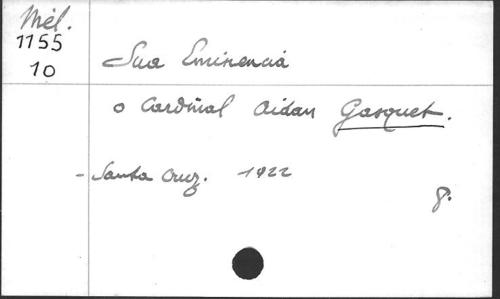 Mél.
1155
10
Sua Eminencia
o Cardinal Aidan Gasquet.
- Santa Cruz. 1922
8.